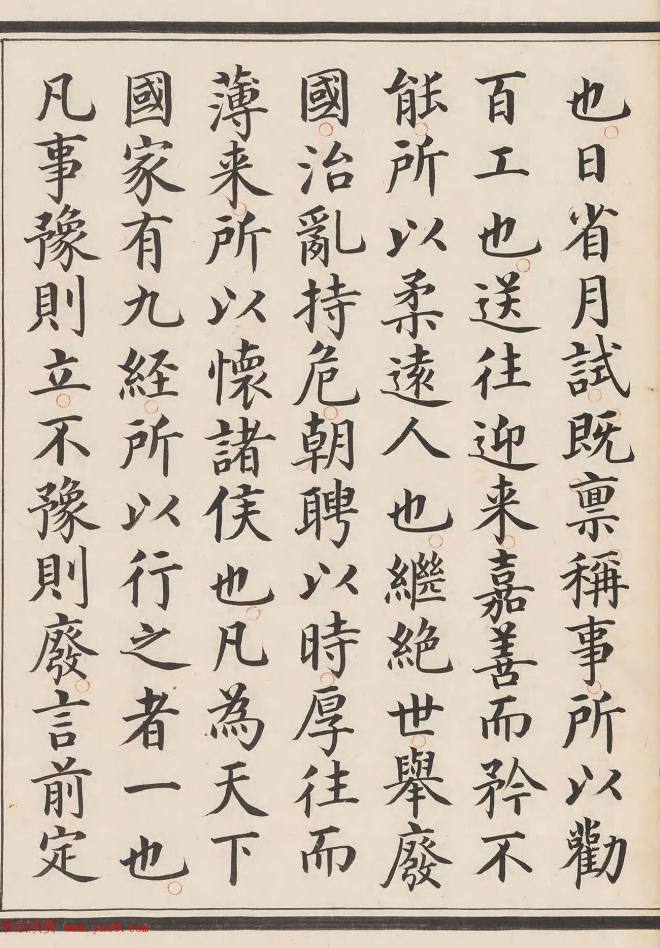 也日省月試既禀稱事所以勸
百工也送往迎来嘉善而矜不
能所以柔遠人也繼絕世舉廢
國治亂持危朝聘以時厚往而
薄来所以懷諸侯也凡為天下
國家有九經所以行之者一也
凡事豫則立不豫則廢言前定